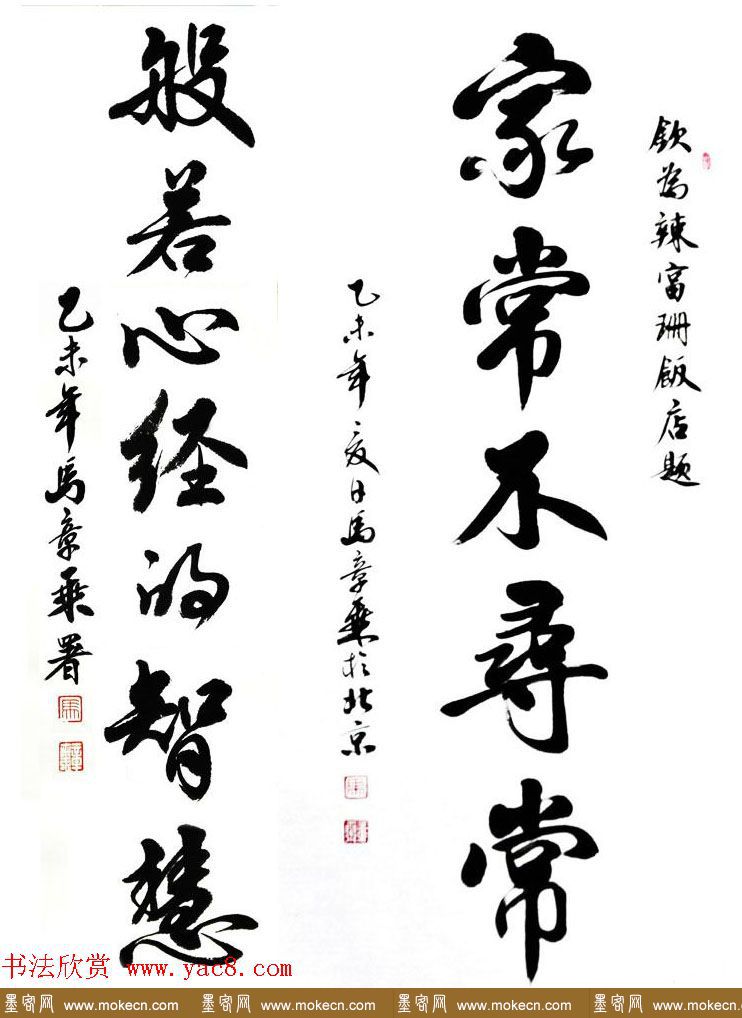 欽為辣富珊飯店题
家常不尋常
乙未年夏日馬章乘於北京
般若心经的智慧
乙未年馬章乘署
书法欣赏 www.yac8.com
墨客网 www.mokecn.com 墨客网 www.mokecn.com 墨客网 www.mokecn.com 墨客网 www.mokecn.com